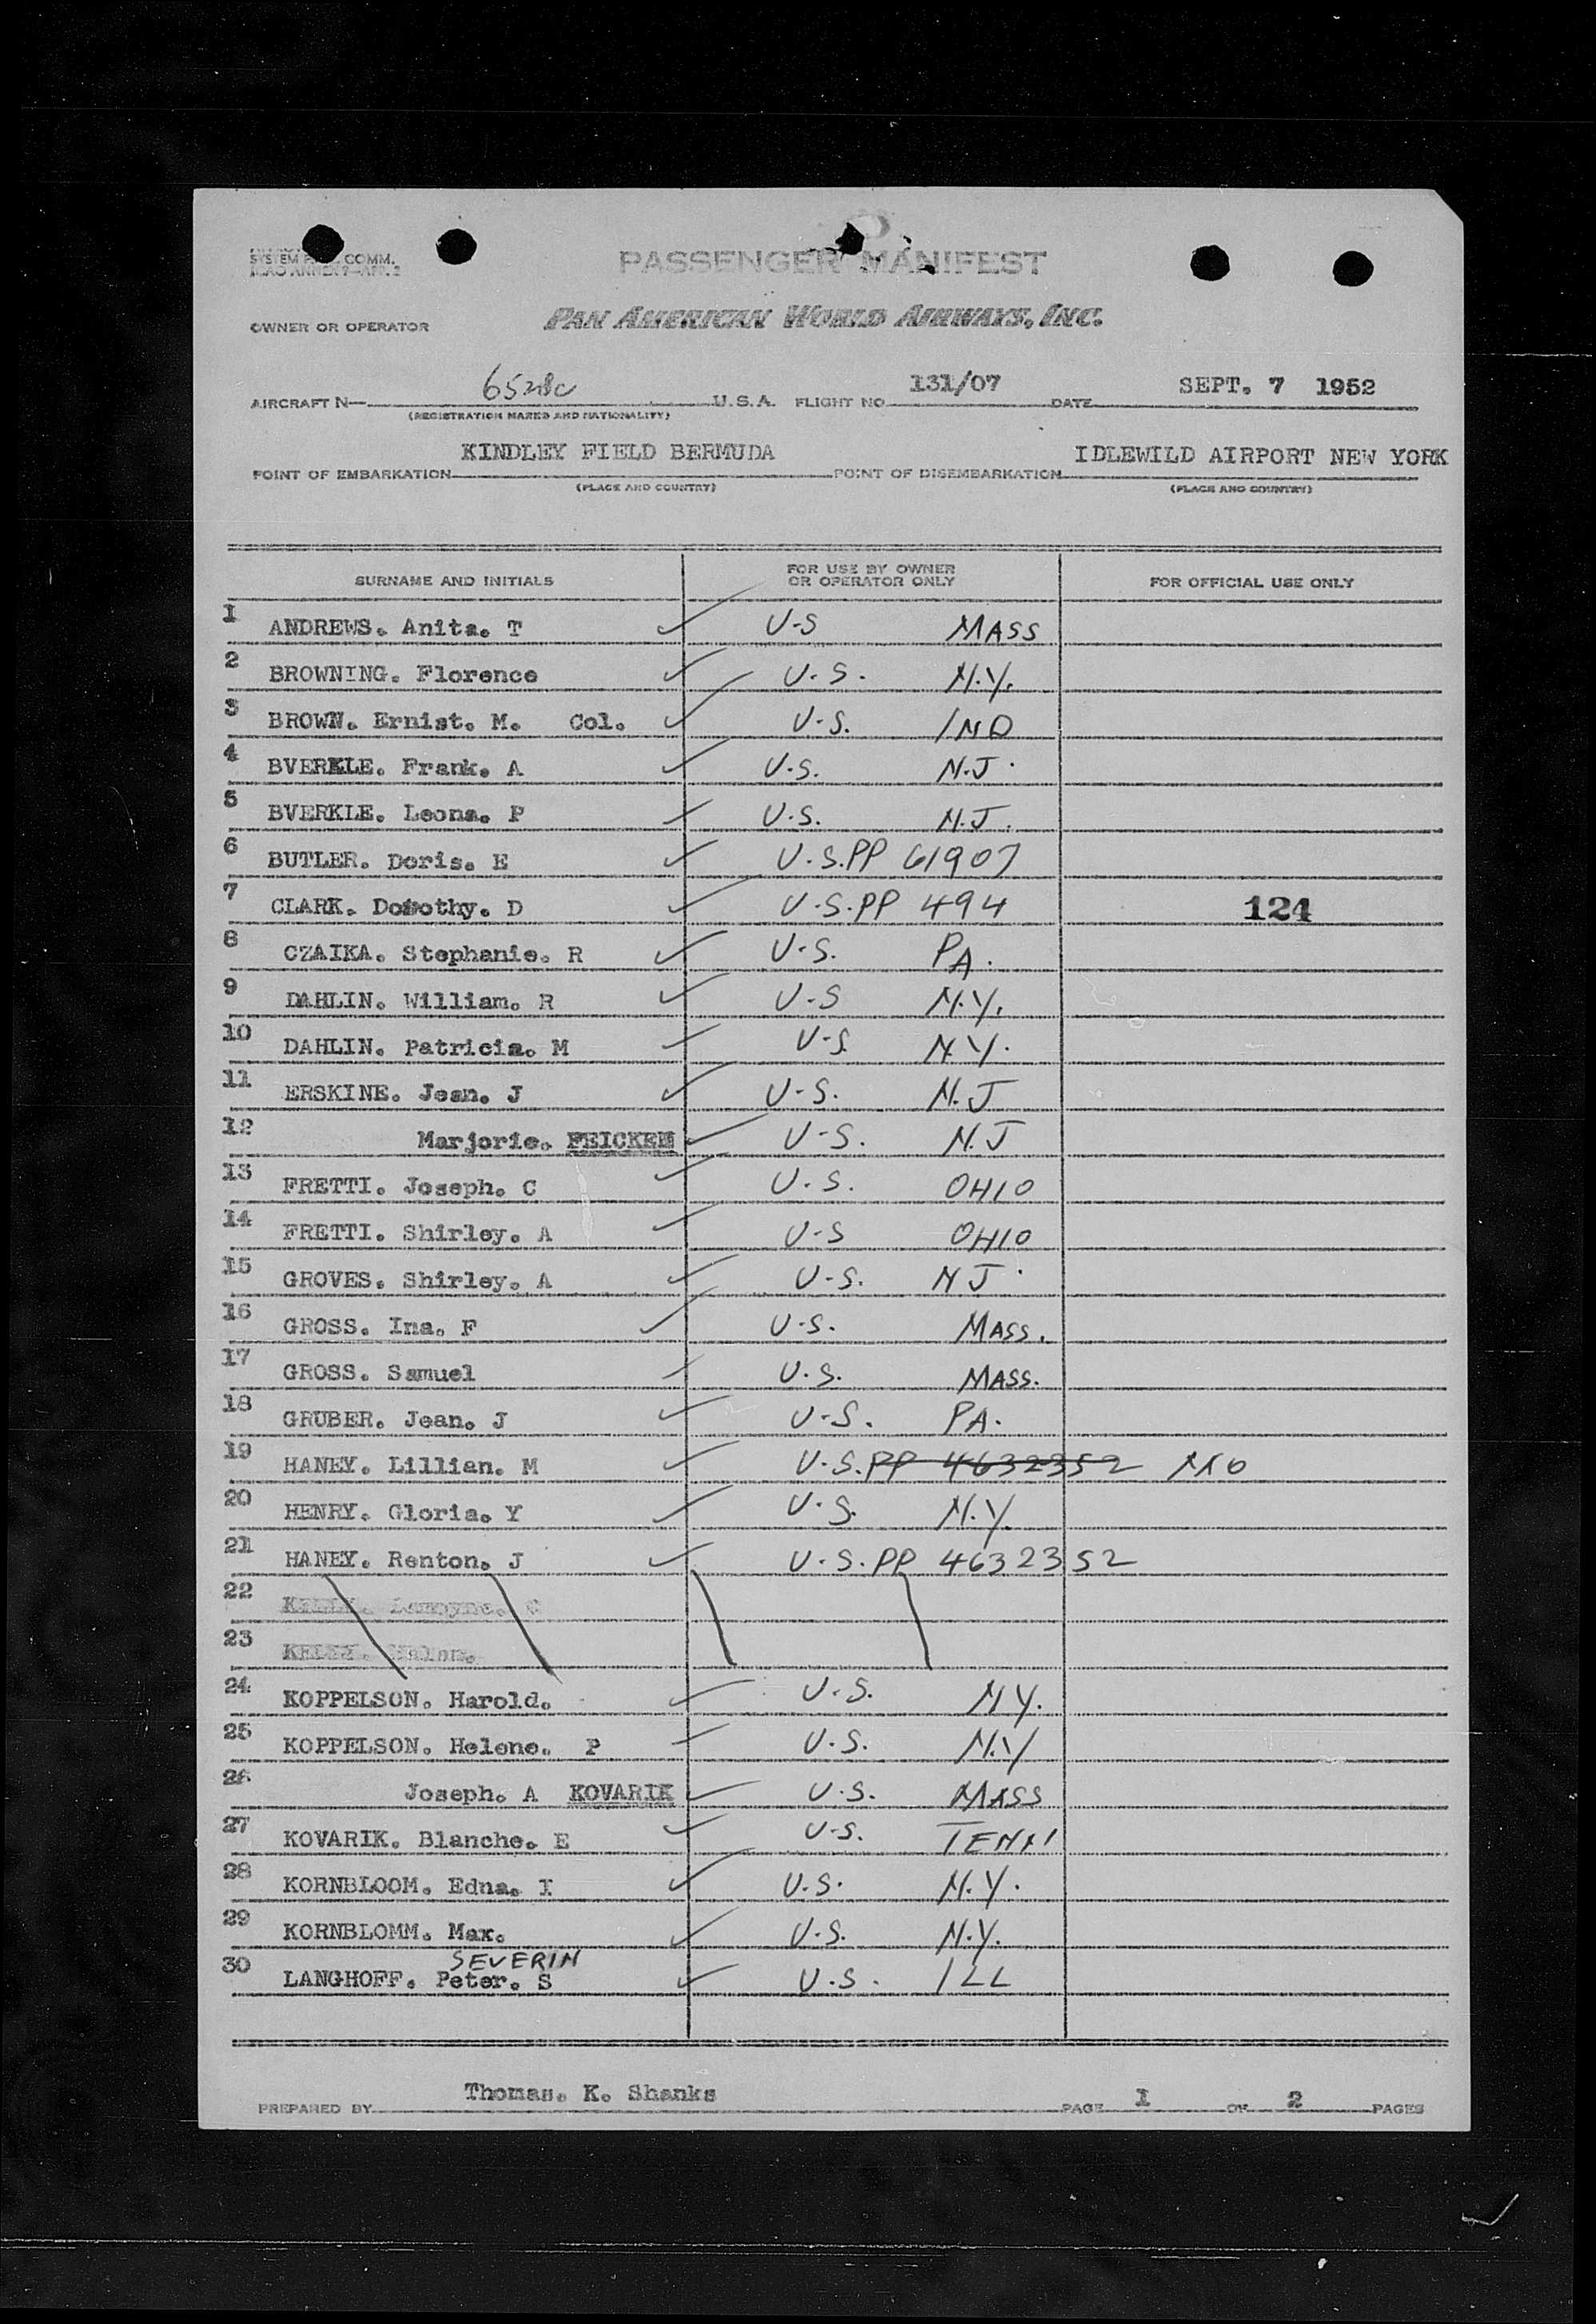 SYSTEM F COMM.
ICAO ANNEX 9—APP. 2
PASSENGER MANIFEST
OWNER OR OPERATOR PAN AMERICAN WORLD AIRWAYS, INC.
AIRCRAFT N— 6528C U.S.A. FLIGHT NO 131/07 DATE SEPT. 7 1952
(REGISTRATION MARKS AND NATIONALITY)
POINT OF EMBARKATION KINDLEY FIELD BERMUDA POINT OF DISEMBARKATION IDLEWILD AIRPORT NEW YORK
(PLACE AND COUNTRY) (PLACE AND COUNTRY)
SURNAME AND INITIALS FOR USE BY OWNER OR OPERATOR ONLY FOR OFFICIAL USE ONLY
1 ANDREWS. Anita. T ✓ U-S MASS
2 BROWNING. Florence ✓ U.S. N.Y.
3 BROWN. Ernist. M. Col. ✓ U.S. IND
4 BVERKLE. Frank. A ✓ U.S. N.J.
5 BVERKLE. Leona. P ✓ U.S. N.J.
6 BUTLER. Doris. E ✓ U.S.PP 61907
7 CLARK. Dorothy. D ✓ U.S.PP 494 124
8 CZAIKA. Stephanie. R ✓ U.S. PA.
9 DAHLIN. William. R ✓ U-S N.Y.
10 DAHLIN. Patricia. M ✓ U-S N.Y.
11 ERSKINE. Jean. J ✓ U-S. N.J
12 Marjorie. FEICKEN ✓ U-S. N.J
13 FRETTI. Joseph. C ✓ U.S. OHIO
14 FRETTI. Shirley. A ✓ U-S OHIO
15 GROVES. Shirley. A ✓ U-S. NJ.
16 GROSS. Ina. F ✓ U.S. MASS.
17 GROSS. Samuel ✓ U.S. MASS.
18 GRUBER. Jean. J ✓ U-S. PA.
19 HANEY. Lillian. M ✓ U.S.PP 4632352
20 HENRY. Gloria. Y ✓ U.S. N.Y.
21 HANEY. Renton. J ✓ U.S.PP 4632352
22
23
24 KOPPELSON. Harold. ✓ U.S. NY.
25 KOPPELSON. Helene. P ✓ U.S. N.Y
26 Joseph. A KOVARIK ✓ U.S. MASS
27 KOVARIK. Blanche. E ✓ U-S. TENN
28 KORNBLOOM. Edna. I ✓ U.S. N.Y.
29 KORNBLOMM. Max. ✓ U.S. N.Y.
SEVERIN
30 LANGHOFF. Peter. S ✓ U.S. ILL
PREPARED BY Thomas. K. Shanks PAGE 1 OF 2 PAGES